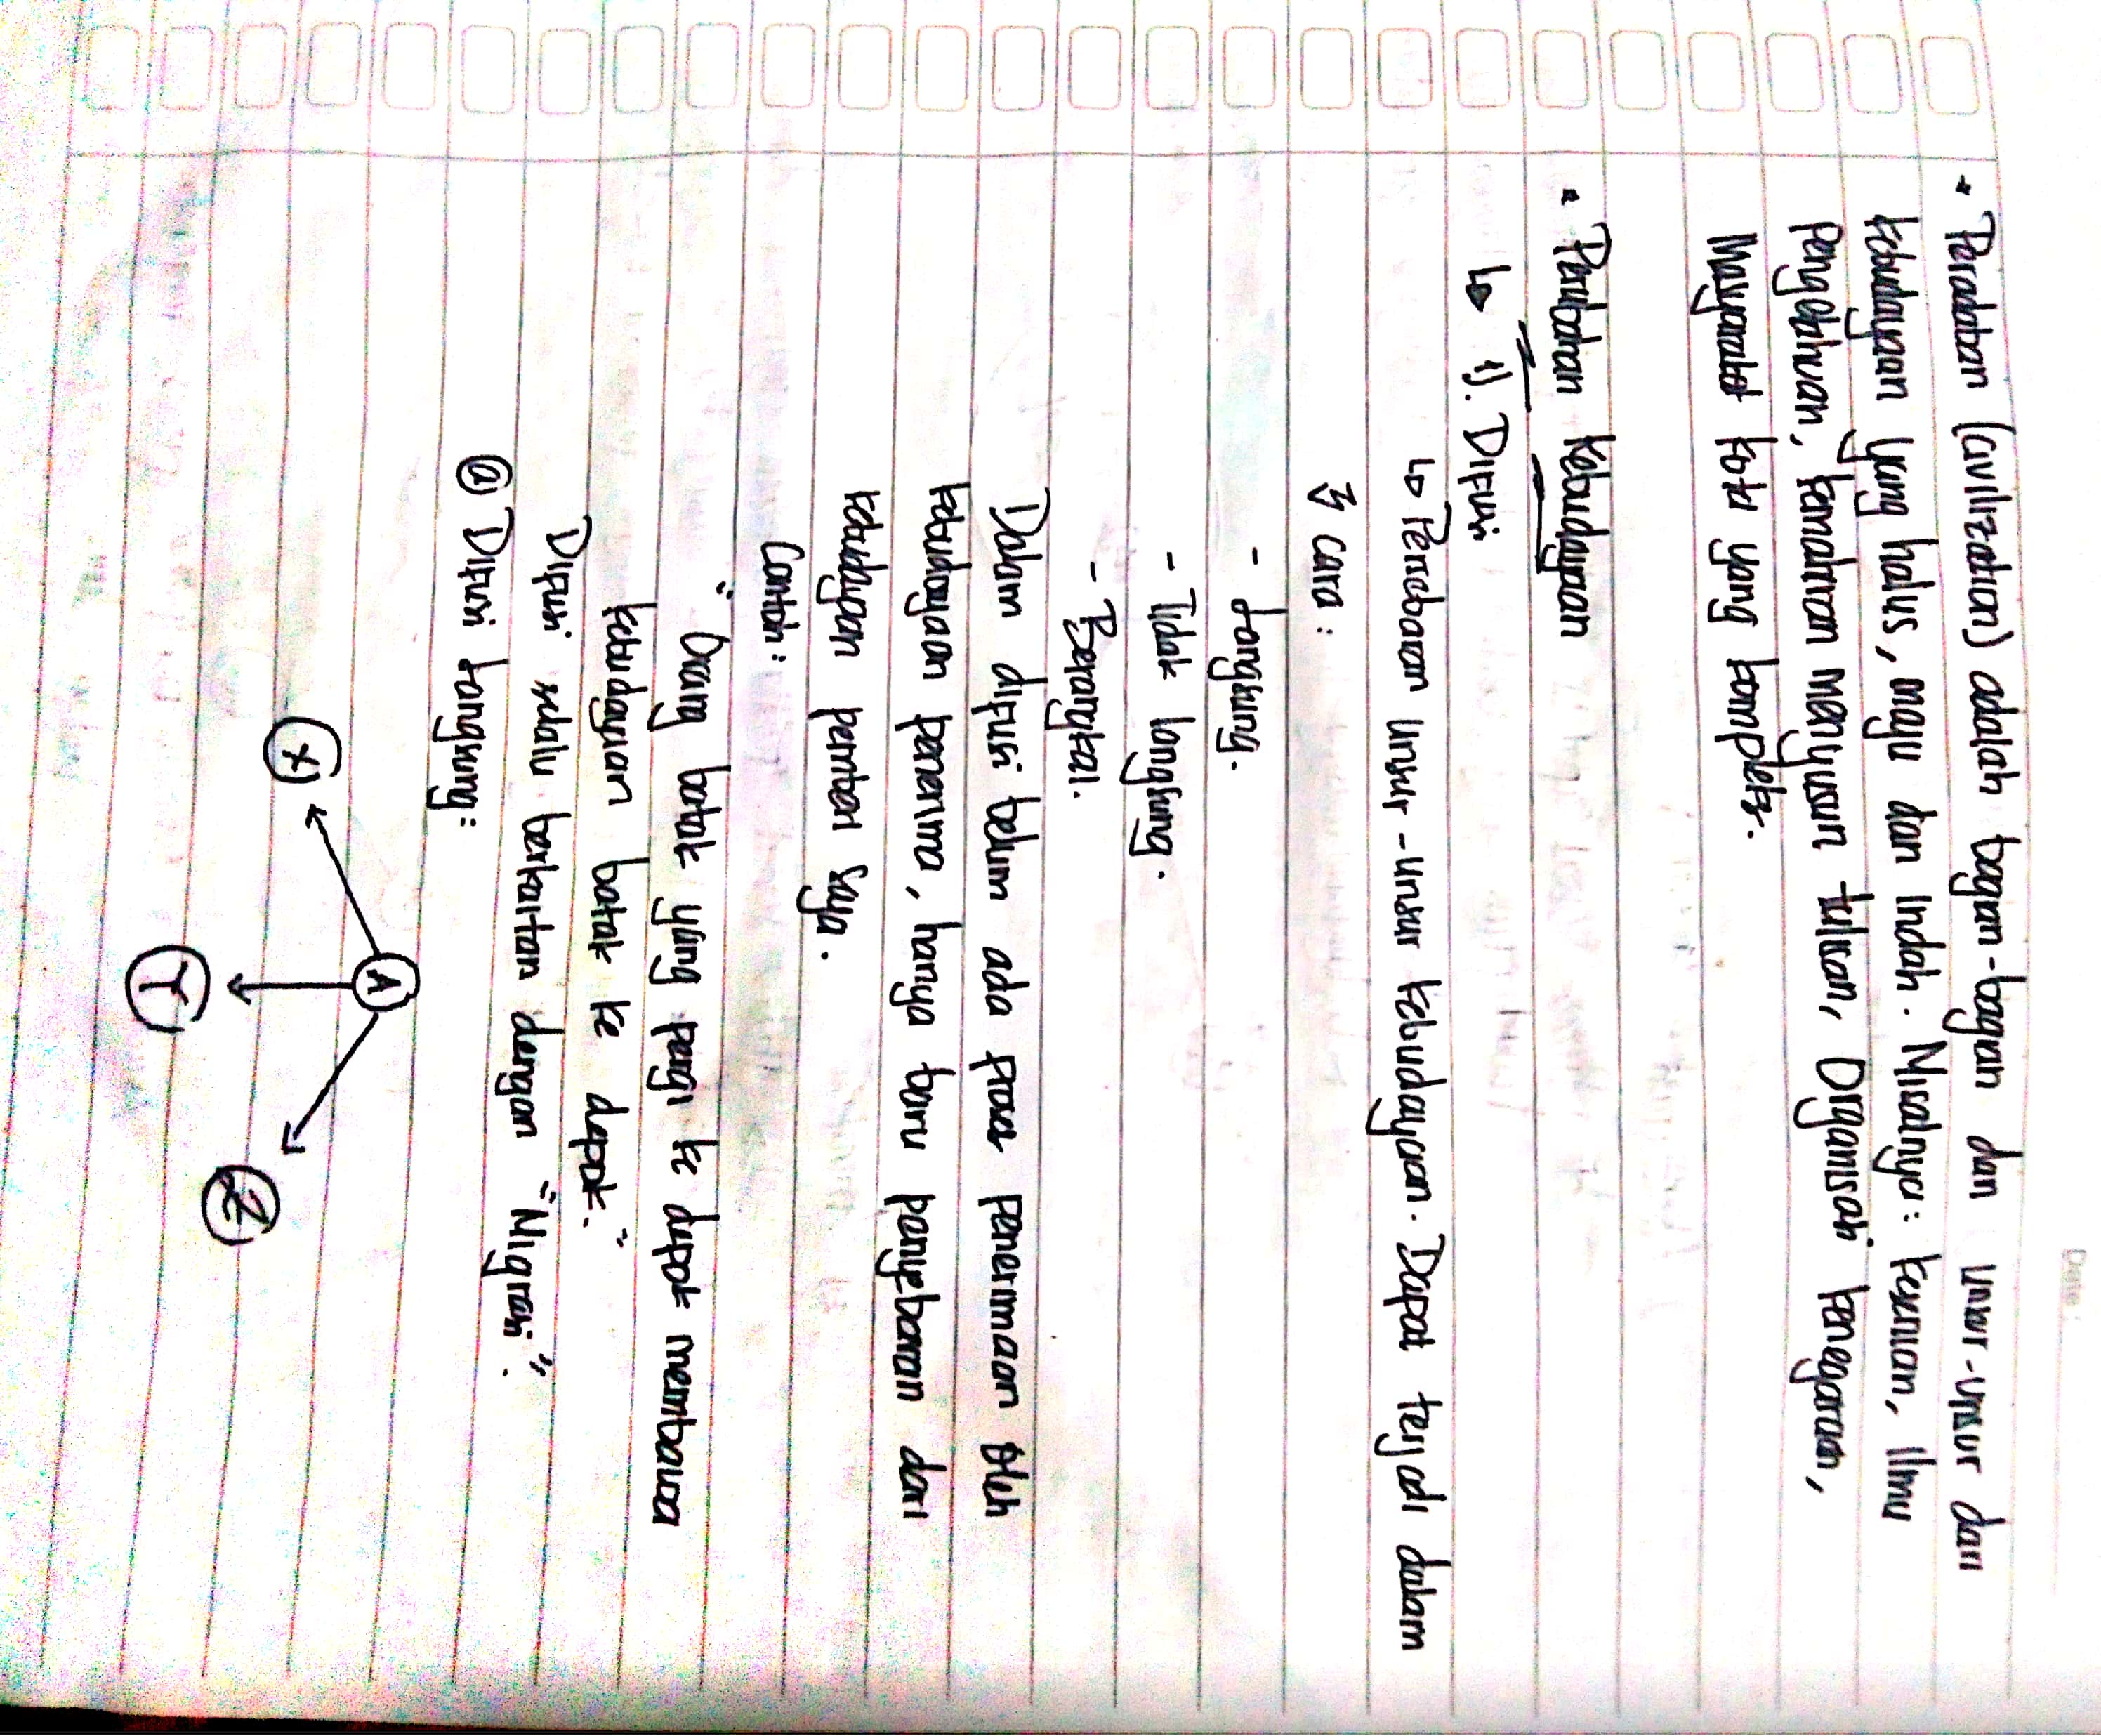 Date :
• Peradaban (civilization) adalah bagian-bagian dan unsur-unsur dari
kebudayaan yang halus, maju dan indah. Misalnya: kesenian, Ilmu
Pengetahuan, kemahiran menyusun tulisan, Organisasi kenegaraan,
Masyarakat kota yang kompleks.
• Perubahan Kebudayaan
↳ 1). Difusi
↳ Persebaran unsur-unsur kebudayaan. Dapat terjadi dalam
3 cara :
- Langsung.
- Tidak langsung.
- Berangkai.
Dalam difusi belum ada proses penerimaan oleh
kebudayaan penerima, hanya baru penyebaran dari
kebudayaan pemberi saja.
Contoh:
" Orang batak yang pergi ke depok membawa
kebudayaan batak ke depok."
Difusi selalu berkaitan dengan "Migrasi".
@ Difusi langsung:
A
X
Y
Z